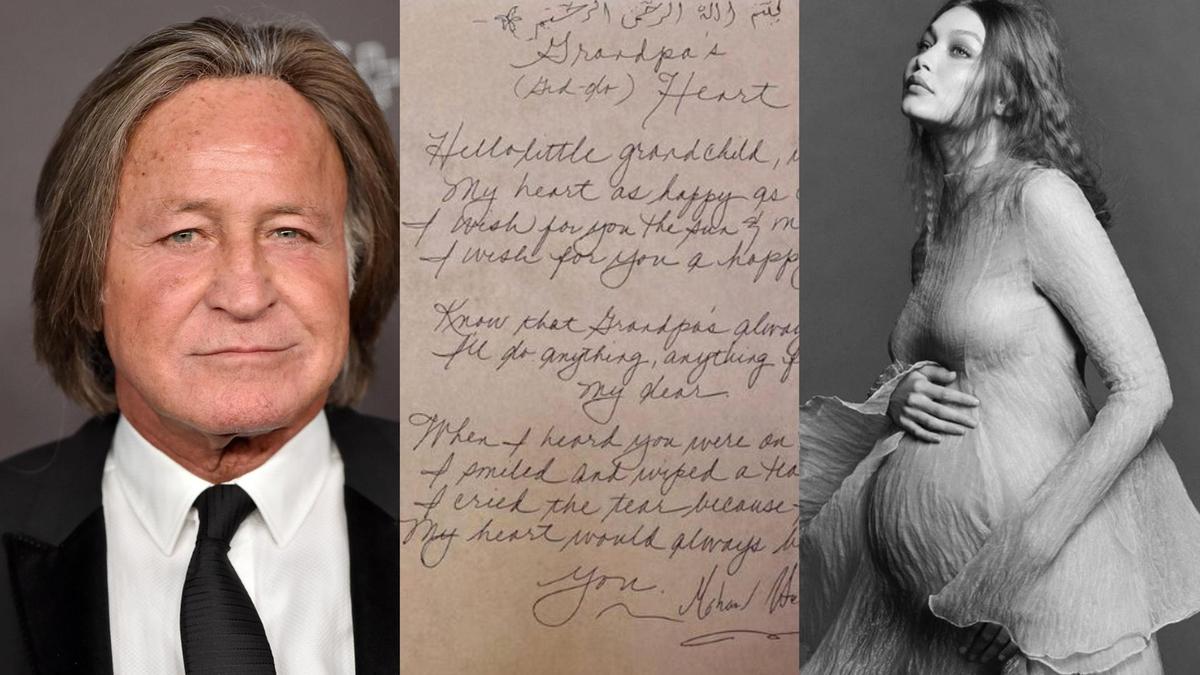 بسم الله الرحمن الرحيم
Grandpa's
(Gid-do) Heart
Hello little grandchild,
My heart as happy as
I wish for you the sun & m
I wish for you a happy
Know that Grandpa's alway
I'll do anything, anything f
My dear
When I heard you were on
I smiled and wiped a tea
I cried the tear because
My heart would always b
you.